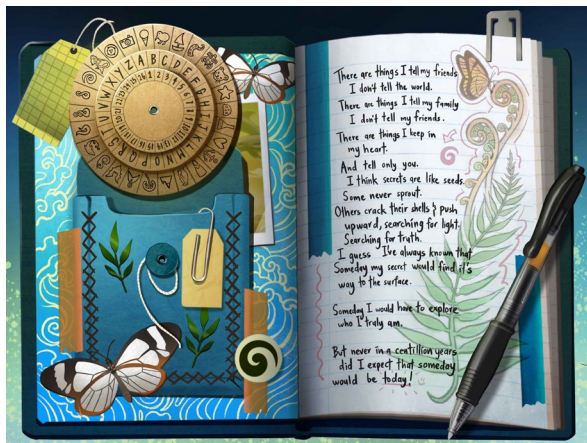 A B C D E F G H I J K L M N O P Q R S T U V W X Y Z
There are things I tell my friends
I don't tell the world.
There are things I tell my family
I don't tell my friends.
There are things I keep in
my heart.
And tell only you.
I think secrets are like seeds.
Some never sprout.
Others crack their shells & push
upward, searching for light.
Searching for truth.
I guess I've always known that
Someday my secret would find it's
way to the surface.
Someday I would have to explore
who I truly am.
But never in a centillion years
did I expect that someday
would be today!